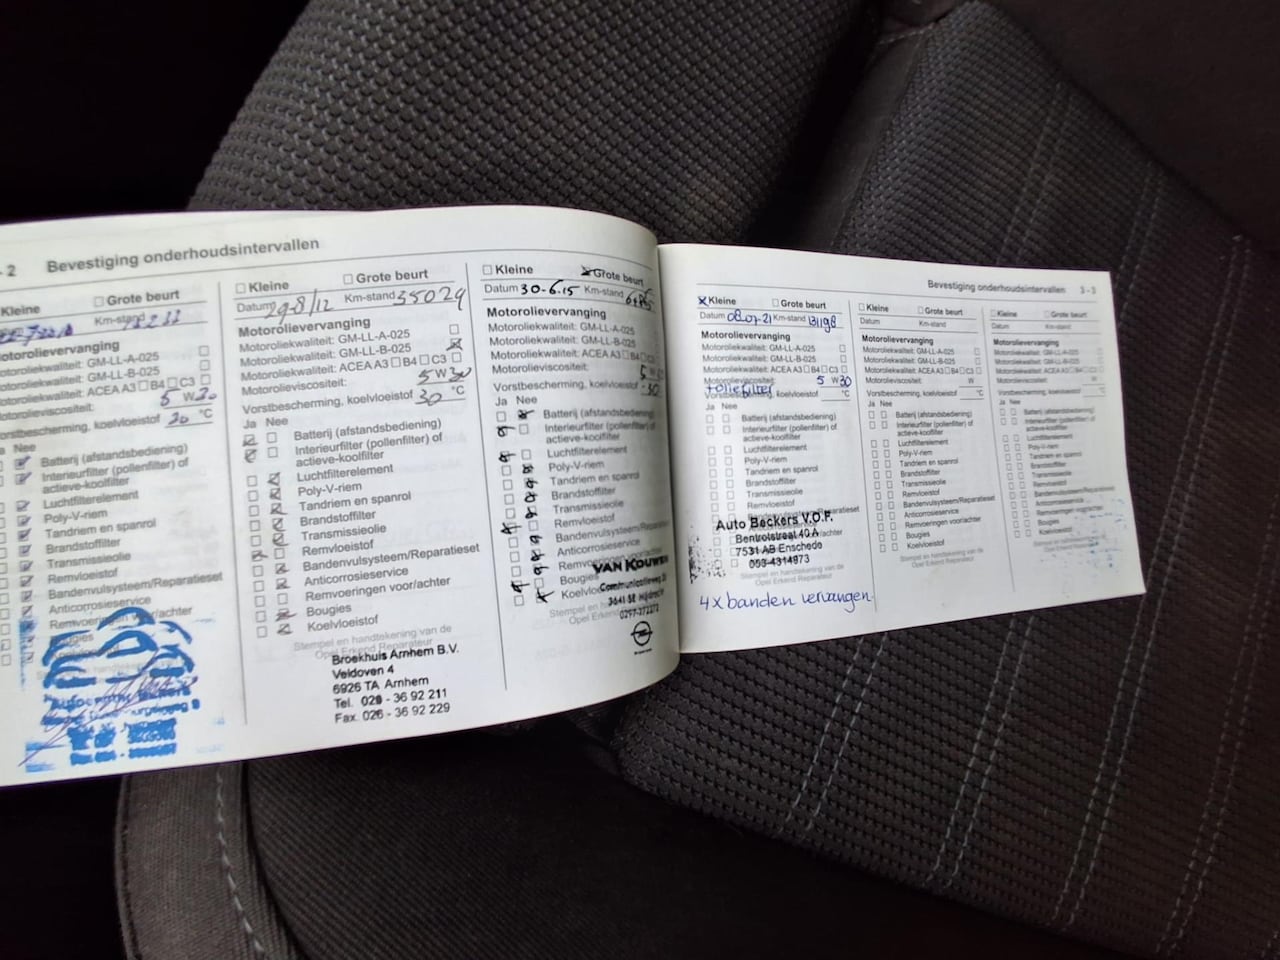 - 2 Bevestiging onderhoudsintervallen
Kleine Grote beurt
Km-stand
Motorolievervanging
Motoroliekwaliteit: GM-LL-A-025
Motoroliekwaliteit: GM-LL-B-025
Motoroliekwaliteit: ACEA A3 B4 C3
Motorolieviscositeit: 5 W
Vorstbescherming, koelvloeistof °C
Nee
Batterij (afstandsbediening)
Interieurfilter (pollenfilter) of
actieve-koolfilter
Luchtfilterelement
Poly-V-riem
Tandriem en spanrol
Brandstoffilter
Transmissieolie
Remvloeistof
Bandenvulsysteem/Reparatieset
Anticorrosieservice
Kleine Grote beurt
Datum 29-8/12 Km-stand 35029
Motorolievervanging
Motoroliekwaliteit: GM-LL-A-025
Motoroliekwaliteit: GM-LL-B-025
Motoroliekwaliteit: ACEA A3 B4 C3
Motorolieviscositeit: 5 W 30
Vorstbescherming, koelvloeistof 30 °C
Ja Nee
Batterij (afstandsbediening)
Interieurfilter (pollenfilter) of
actieve-koolfilter
Luchtfilterelement
Poly-V-riem
Tandriem en spanrol
Brandstoffilter
Transmissieolie
Remvloeistof
Bandenvulsysteem/Reparatieset
Anticorrosieservice
Remvoeringen voor/achter
Bougies
Koelvloeistof
Stempel en handtekening van de
Opel Erkend Reparateur
Broekhuis Arnhem B.V.
Veldoven 4
6926 TA Arnhem
Tel. 026 - 36 92 211
Fax. 026 - 36 92 229
Kleine Grote beurt
Datum 30-6-15 Km-stand
Motorolievervanging
Motoroliekwaliteit: GM-LL-A-025
Motoroliekwaliteit: GM-LL-B-025
Motoroliekwaliteit: ACEA A3 B4 C3
Motorolieviscositeit: 5 W
Vorstbescherming, koelvloeistof -30
Ja Nee
Batterij (afstandsbediening)
Interieurfilter (pollenfilter) of
actieve-koolfilter
Luchtfilterelement
Poly-V-riem
Tandriem en spanrol
Brandstoffilter
Transmissieolie
Remvloeistof
Bandenvulsysteem/Reparatieset
Anticorrosieservice
Remvoeringen voor/achter
Bougies
VAN KOUWEN
Communicatieweg
3641 SE Mijdrecht
0297-272272
Bevestiging onderhoudsintervallen 3 - 3
X Kleine Grote beurt
Datum 08-07-21 Km-stand 131198
Motorolievervanging
Motoroliekwaliteit: GM-LL-A-025
Motoroliekwaliteit: GM-LL-B-025
Motoroliekwaliteit: ACEA A3 B4 C3
Motorolieviscositeit: 5 W 30
+oliefilter
Vorstbescherming, koelvloeistof °C
Ja Nee
Batterij (afstandsbediening)
Interieurfilter (pollenfilter) of
actieve-koolfilter
Luchtfilterelement
Poly-V-riem
Tandriem en spanrol
Brandstoffilter
Transmissieolie
Remvloeistof
Auto Beckers V.O.F.
Bentrotstraat 40 A
7531 AB Enschede
053-4314973
Stempel en handtekening van de
Opel Erkend Reparateur
4x banden vervangen.
Kleine Grote beurt
Datum Km-stand
Motorolievervanging
Motoroliekwaliteit: GM-LL-A-025
Motoroliekwaliteit: GM-LL-B-025
Motoroliekwaliteit: ACEA A3 B4 C3
Motorolieviscositeit: W
Vorstbescherming, koelvloeistof °C
Ja Nee
Batterij (afstandsbediening)
Interieurfilter (pollenfilter) of
actieve-koolfilter
Luchtfilterelement
Poly-V-riem
Tandriem en spanrol
Brandstoffilter
Transmissieolie
Remvloeistof
Bandenvulsysteem/Reparatieset
Anticorrosieservice
Remvoeringen voor/achter
Bougies
Koelvloeistof
Stempel en handtekening van de
Opel Erkend Reparateur
Kleine Grote beurt
Datum Km-stand
Motorolievervanging
Motoroliekwaliteit: GM-LL-A-025
Motoroliekwaliteit: GM-LL-B-025
Motoroliekwaliteit: ACEA A3 B4 C3
Motorolieviscositeit: W
Vorstbescherming, koelvloeistof °C
Ja Nee
Batterij (afstandsbediening)
Interieurfilter (pollenfilter) of
actieve-koolfilter
Luchtfilterelement
Poly-V-riem
Tandriem en spanrol
Brandstoffilter
Transmissieolie
Remvloeistof
Bandenvulsysteem/Reparatieset
Anticorrosieservice
Remvoeringen voor/achter
Bougies
Koelvloeistof
Stempel en handtekening van de
Opel Erkend Reparateur